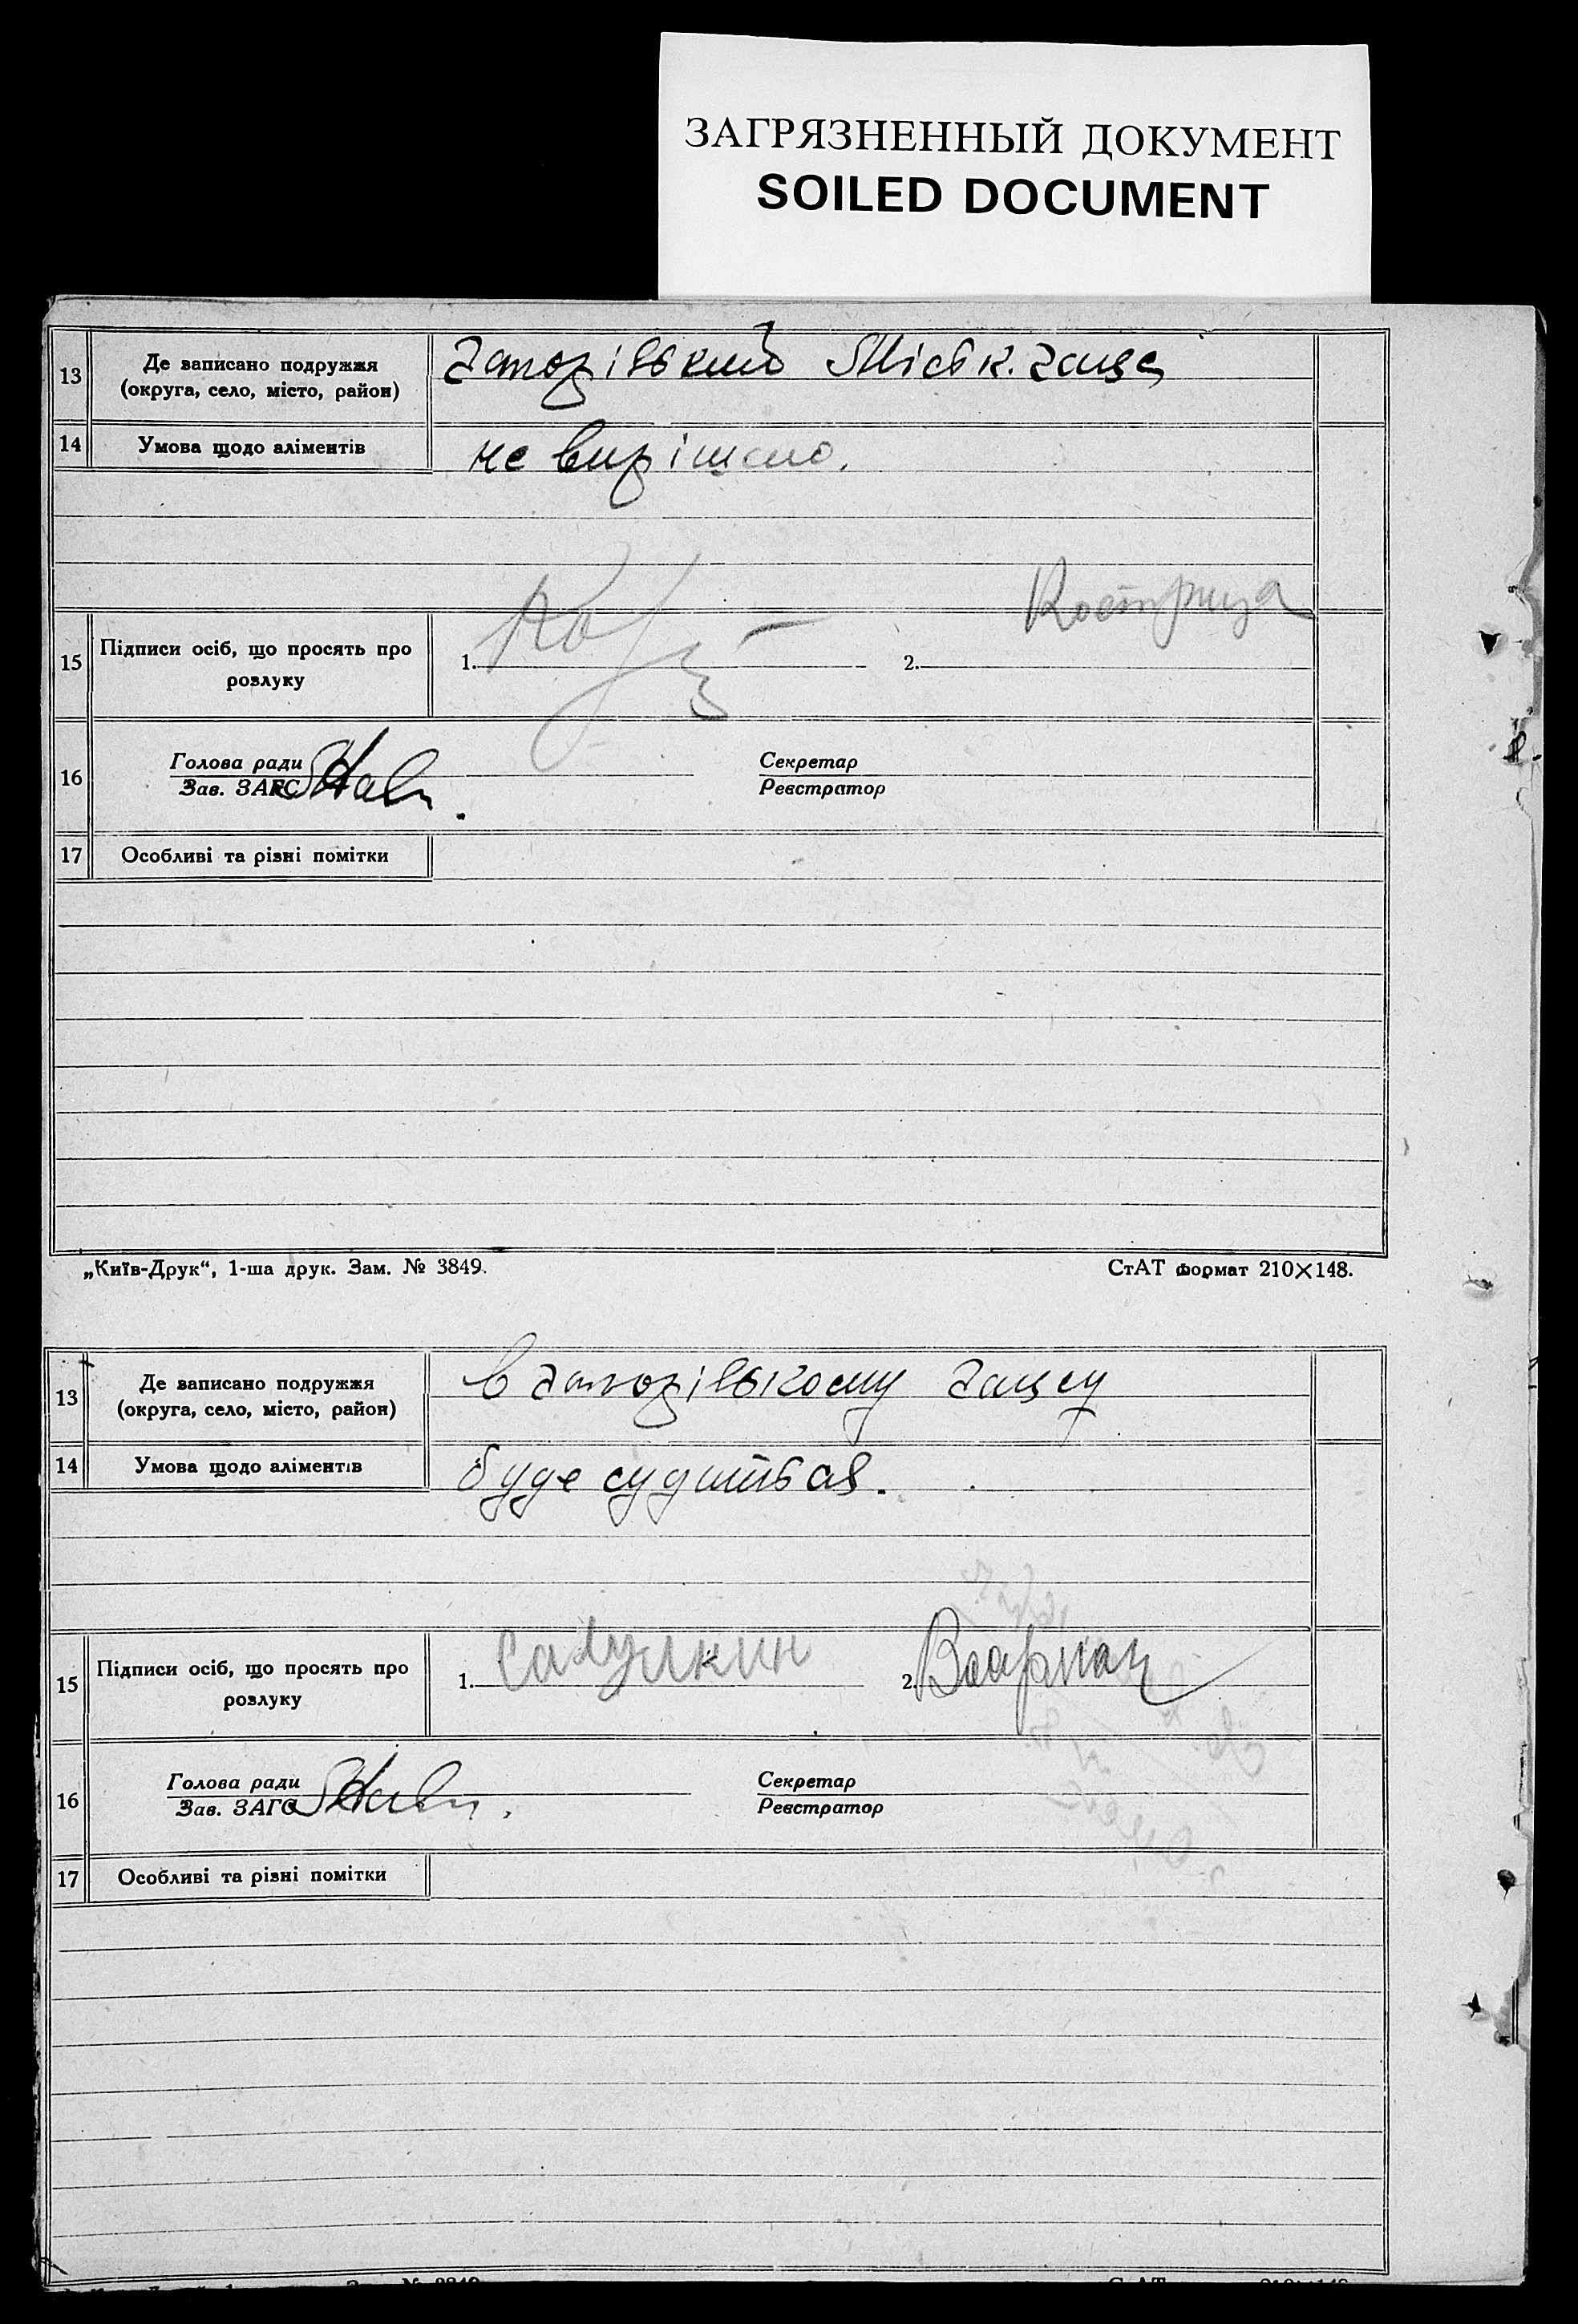 ЗАГРЯЗНЕННЫЙ ДОКУМЕНТ
SOILED DOCUMENT
13
Де записано подружжя
(округа, село, місто, район)
14
Умова щодо аліментів
не вирішено.
15
Підписи осіб, що просять про
розлуку
1.
2. Кострица
16
Голова ради
Зав. ЗАГС
Секретар
Реєстратор
17
Особливі та різні помітки
„Київ-Друк“, 1-ша друк. Зам. № 3849.
СтАТ формат 210×148.
13
Де записано подружжя
(округа, село, місто, район)
14
Умова щодо аліментів
буде судитись.
15
Підписи осіб, що просять про
розлуку
1.
2.
16
Голова ради
Зав. ЗАГС
Секретар
Реєстратор
17
Особливі та різні помітки